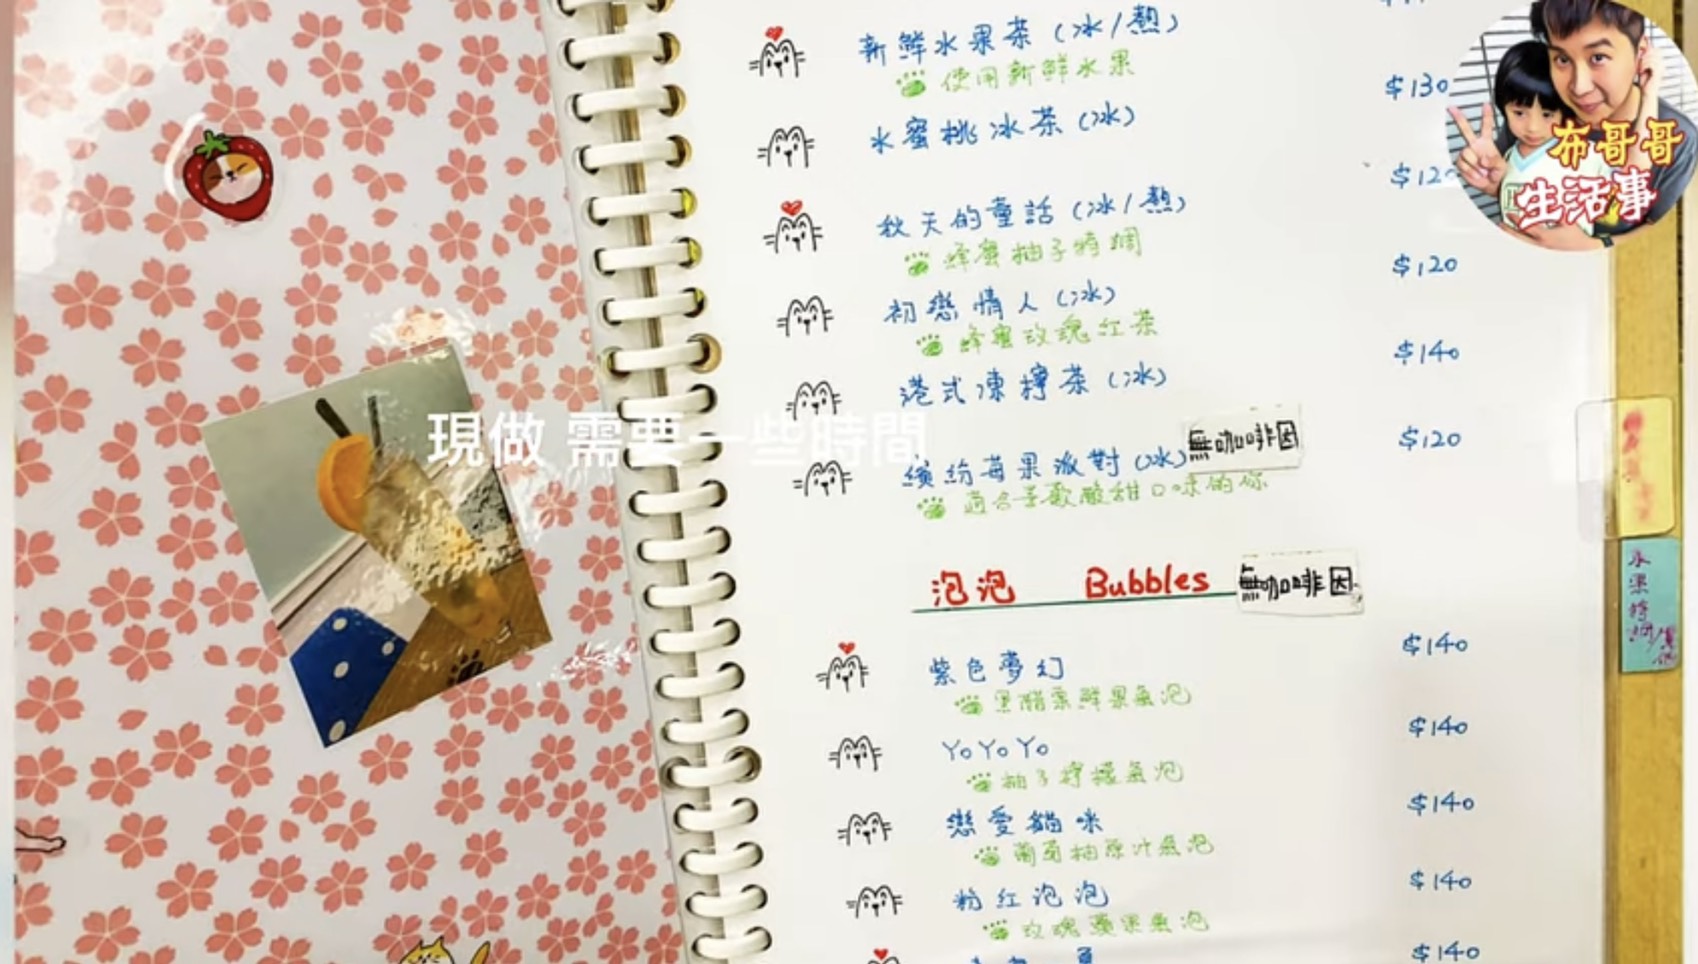 新鮮水果茶（冰/熱）
使用新鮮水果
$130
水蜜桃冰茶（冰）
$120
秋天的童話（冰/熱）
蜂蜜柚子特調
$120
初戀情人（冰）
蜂蜜玫瑰紅茶
$140
港式凍檸茶（冰）
$120
繽紛莓果派對（冰）無咖啡因
適合喜歡酸甜口味的你
泡泡 Bubbles 無咖啡因
$140
紫色夢幻
黑醋栗鮮果氣泡
$140
YoYoYo
柚子檸檬氣泡
$140
戀愛貓咪
葡萄柚原汁氣泡
$140
粉紅泡泡
玫瑰蘋果氣泡
$140
現做 需要一些時間
布哥哥
生活事
水果特調